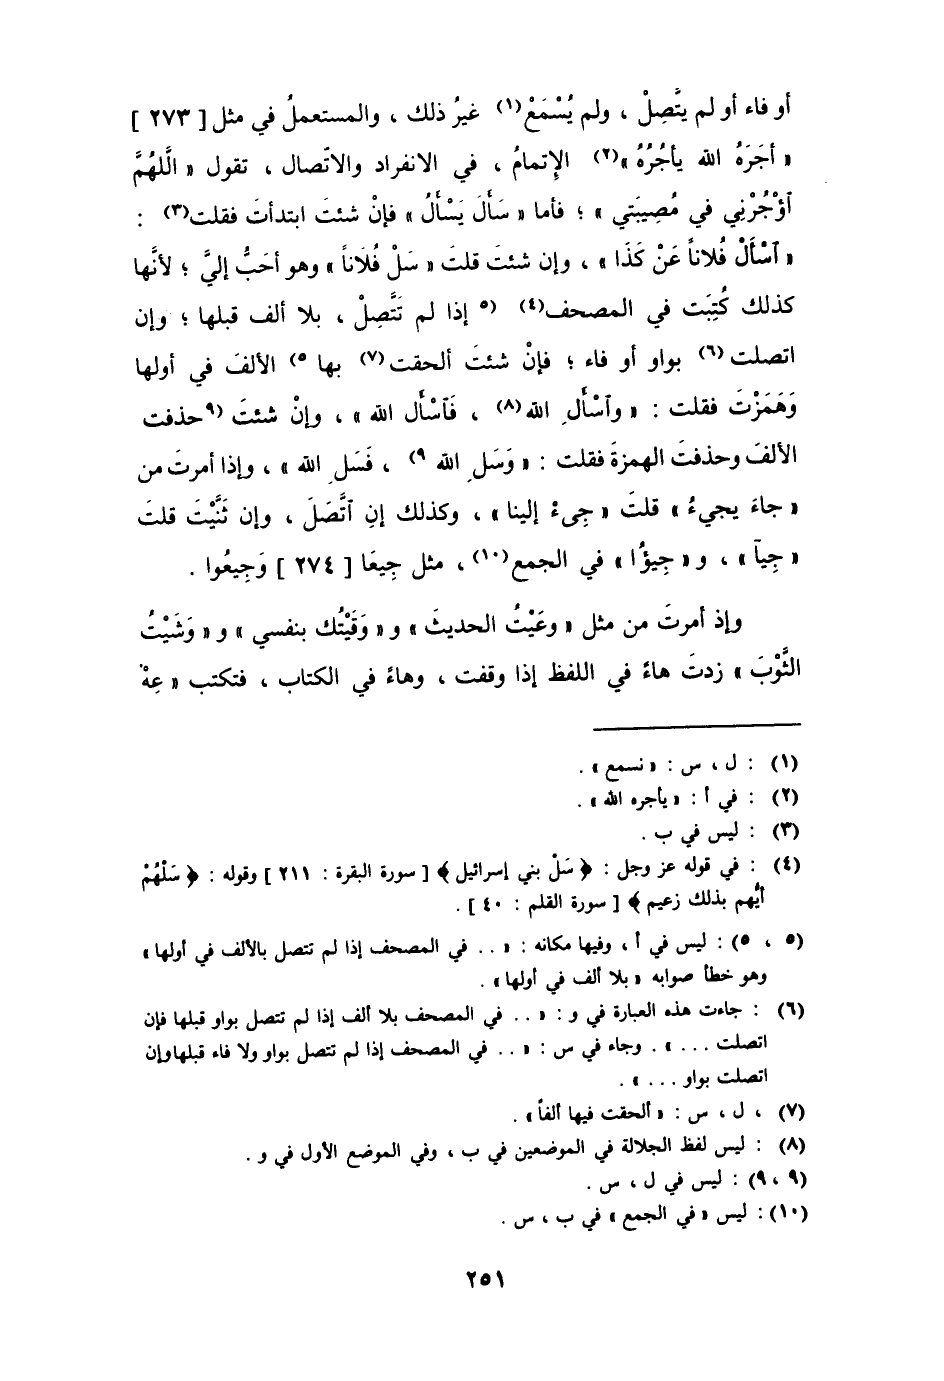 أو فاء أو لم يتَّصِلْ ، ولم يُسْمَعْ(١) غيرُ ذلك ، والمستعملُ في مثل [ ٢٧٣ ]
« أجَرَهُ الله يأجُرُهُ »(٢) الإتمامُ ، في الانفراد والاتّصال ، تقول « الَّلهُمَّ
ٱؤْجُرْنِي في مُصِيبَتي » ؛ فأما « سَأَلَ يَسْأَلُ » فإنْ شئتَ ابتدأتَ فقلت(٣) :
« ٱسْأَلْ فُلاناً عَنْ كَذَا » ، وإن شئتَ قلتَ « سَلْ فُلَاناً » وهو أحَبُّ إليَّ ؛ لأنَّها
كذلك كُتِبَت في المصحف(٤) (٥ إذا لم تَتَّصِلْ ، بلا ألف قبلها ؛ وإن
اتصلت(٦) بواو أو فاء ؛ فإنْ شئتَ ألحقت(٧) بها ٥) الألفَ في أولها
وَهَمَزْتَ فقلت : « وٱسْأَلِ الله(٨) ، فَٱسْأَل الله » ، وإنْ شئتَ (٩حذفت
الألفَ وحذفتَ الهمزةَ فقلت : « وَسَلِ الله ٩) ، فَسَلِ الله » ، وإذا أمرتَ من
« جاءَ يجيءُ » قلتَ « جِىءْ إلينا » ، وكذلك إنِ ٱتَّصَلَ ، وإن ثَنَّيْتَ قلتَ
« جِيآ » ، و « جِيؤُا » في الجمع(١٠) ، مثل جِيعَا [ ٢٧٤ ] وَجِيعُوا .
وإذ أمرتَ من مثل « وعَيْتُ الحديثَ » و « وَقَيْتُك بنفسي » و « وَشَيْتُ
الثَّوْبَ » زدتَ هاءً في اللفظ إذا وقفت ، وهاءً في الكتاب ، فتكتب « عِهْ
(١) : ل ، س : « نسمع » .
(٢) : في أ : « يأجره الله » .
(٣) : ليس في ب .
(٤) : في قوله عز وجل : ﴿ سَلْ بني إسرائيل ﴾ [ سورة البقرة : ٢١١ ] وقوله : ﴿ سَلْهُمْ
أيُّهم بذلك زعيم ﴾ [ سورة القلم : ٤٠ ] .
(٥ ، ٥) : ليس في أ ، وفيها مكانه : « .. في المصحف إذا لم تتصل بالألف في أولها »
وهو خطأ صوابه « بلا ألف في أولها » .
(٦) : جاءت هذه العبارة في و : « .. في المصحف بلا ألف إذا لم تتصل بواو قبلها فإن
اتصلت ... » . وجاء في س : « .. في المصحف إذا لم تتصل بواو ولا فاء قبلها وإن
اتصلت بواو ... » .
(٧) ، ل ، س : « ألحقت فيها ألفاً » .
(٨) : ليس لفظ الجلالة في الموضعين في ب ، وفي الموضع الأول في و .
(٩ ، ٩) : ليس في ل ، س .
(١٠) : ليس « في الجمع » في ب ، س .
٢٥١